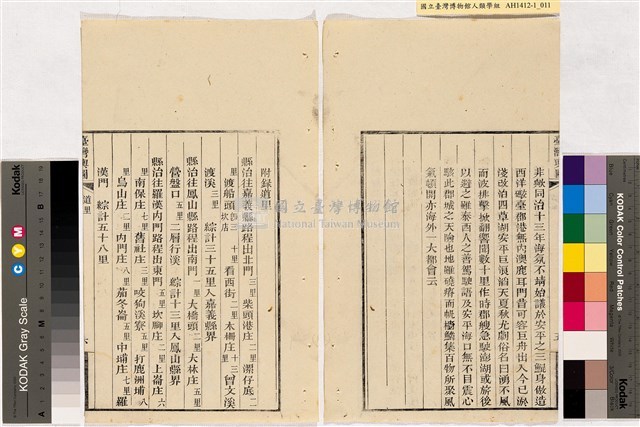 國立臺灣博物館人類學組 AH1412-1_011
非常同治十三年海氛不靖始議於安平之三鯤身倣造
西洋礮臺郡港無內澳鹿耳門昔可容巨舟出入今已淤
淺改泊四草湖安平巨浪滔天夏秋尤劇俗名曰湧不風
而波排擊城翻響聞數十里作時郡艘急駛澎湖或
以避之雖泰西人之善駕駛諸及安平海口無不目震心
駭此郡城之天險也地雖磽瘠而帆檣鱗集百物所聚風
氣頓開亦海外一大都會云
附錄道里
縣治往嘉義縣路程出北門三里柴頭港庄二里溪仔底二
里渡船頭三里看西街二里木柵庄十三里曾文溪
三里渡溪 綜計三十五里入嘉義縣界
縣治往鳳山縣路程出南門一里大橋頭二里大林庄五里
營盤口五里二層行溪 綜計十三里入鳳山縣界
縣治往羅漢內門路程出東門五里坎腳庄二里上崙庄六
里南保庄七里舊社庄三里咬狗溪寮五里打鹿洲埔八
里烏山庄二里內門庄八里茄冬崙五里中埔庄七里羅
漢門 綜計五十八里
臺灣輿圖
道里
國立臺灣博物館
National Taiwan Museum
Kodak
KODAK Gray Scale
C Y M
KODAK Color Control Patches